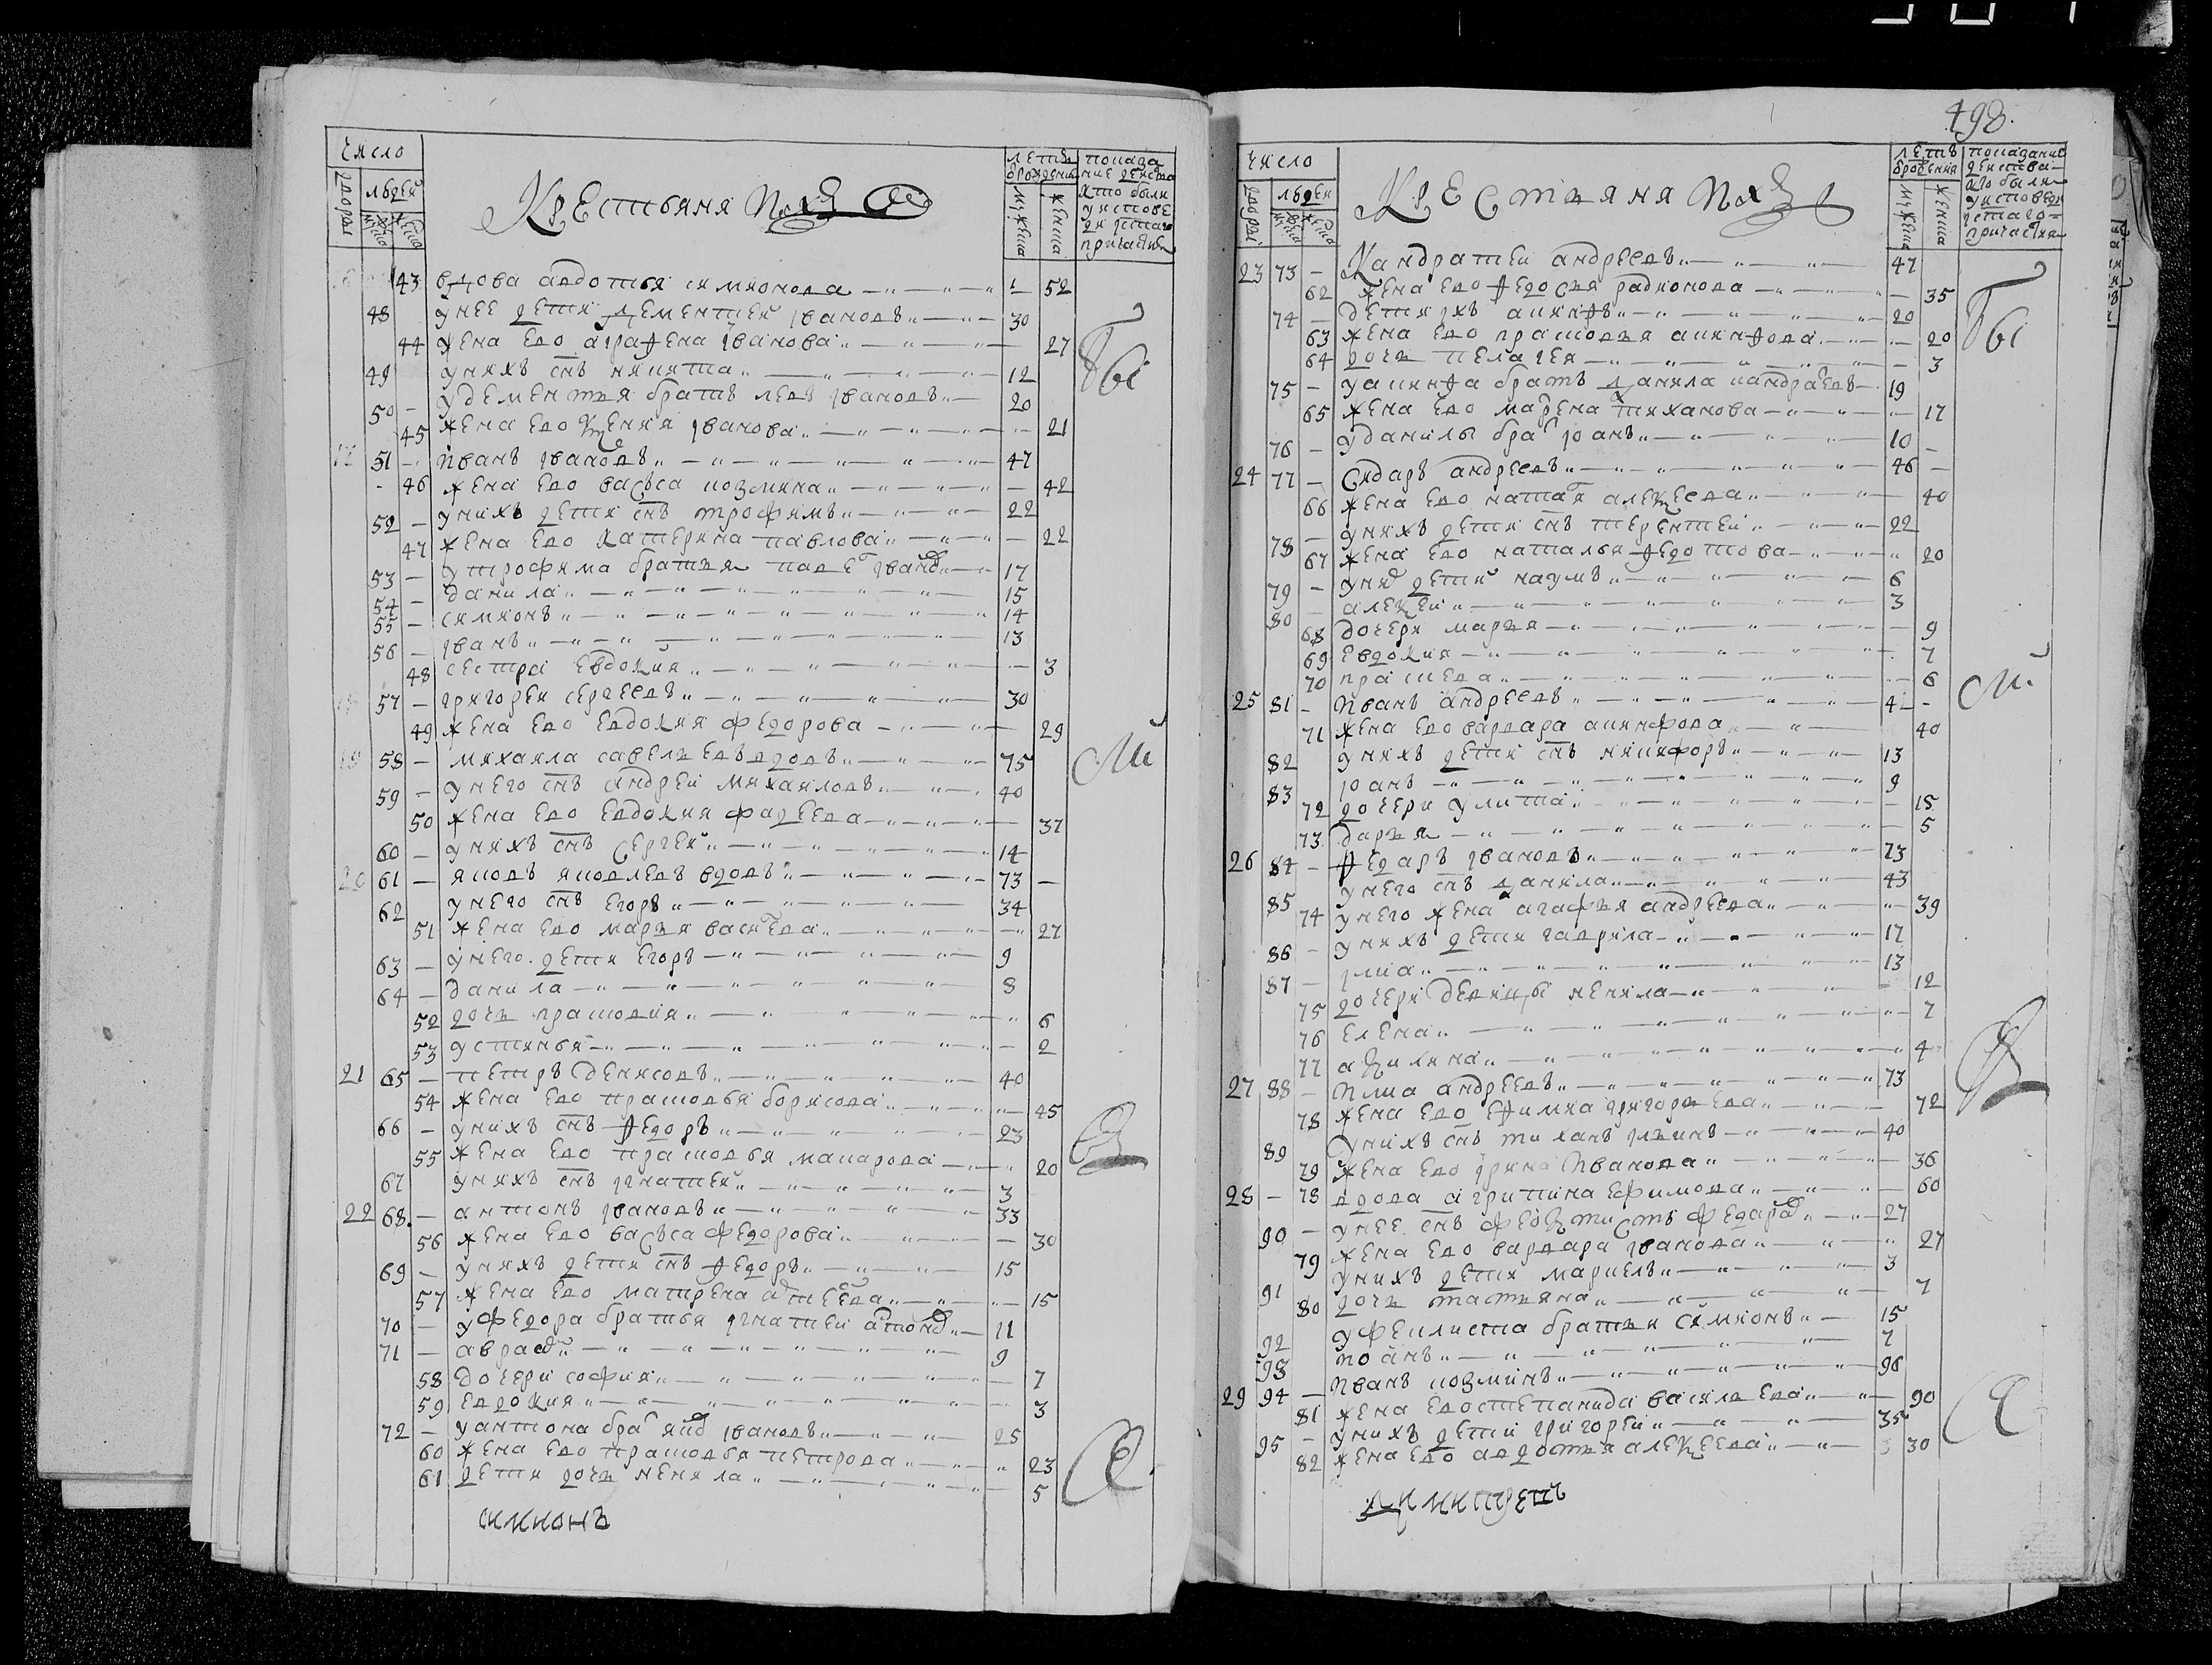 число
дворы
людей
мужеска
женска
Крестьяня и их
лета
рождения
мужеска
женска
показа
ние действа
кто были
у исповеди
и у стаго
причастия
43 вдова авдотья симионова 52
48 у нее дети дементей иванов 30
44 жена ево аграфена иванова 27
49 у них снъ никита 12
50 у дементья братъ левъ ивановъ 20
45 жена ево ксения иванова 21
51 Иванъ ивановъ 47
46 жена ево васса козмина 42
52 у них дети снъ трофимъ 22
47 жена ево катерина павлова 22
53 у трофима братья иванов 17
54 данила 15
55 симионъ 14
56 иванъ 13
48 сестра евдокия 3
57 григорей сергеевъ 30
49 жена ево евдокия федорова 29
58 михаила савельевъ вдовъ 75
59 у него снъ андрей михаиловъ 40
50 жена ево евдокия фадеева 37
60 у нихъ снъ сергей 14
20 61 яковъ яковлевъ вдовъ 73
62 у него снъ егоръ 34
51 жена ево марья 27
63 у него дети егоръ 9
64 данила 8
52 дочь прасковия 6
53 устинья 2
21 65 петръ денисовъ 40
54 жена ево прасковья борисова 45
66 у нихъ снъ федоръ 23
55 жена ево прасковья макарова 20
67 у нихъ снъ игнатей 3
22 68 антонъ ивановъ 33
56 жена ево васса федорова 30
69 у нихъ дети снъ федоръ 15
57 жена ево матрена 15
70 у федора братья игнатей антонов 11
71 9
58 дочери софия 7
59 евдокия 3
72 у антона брат ивановъ 25
60 жена ево прасковья петрова 23
61 дети дочь ненила 5
симионъ
498
число
дворы
людей
мужеска
женска
Крестьяня и их
летъ
рождения
мужеска
женска
показание
действа
кто были
у исповеди
и стаго
причастия
23 73 Кандратей андреевъ 47
62 жена ево федосия радионова 35
74 дети их акинфъ 20
63 жена ево прасковья акинфова 20
64 дочь пелагея 3
75 у акинфа братъ данила кандраевъ 19
65 жена ево марена тиханова 17
76 у данилы брат иоанъ 10
24 77 Сидаръ андреевъ 46
66 жена ево алексеева 40
78 у нихъ дети снъ терентей 22
67 жена ево наталья федотова 20
79 у них дети наумъ 6
80 алексей 3
68 дочери марья 9
69 евдокия 7
70 6
25 81 Иванъ андреевъ
71 жена ево варвара акинфова 40
82 у нихъ дети снъ никифоръ 13
83 иоанъ 9
72 дочери улита 15
73 дарья 5
26 84 федаръ ивановъ 73
85 у него снъ данила 43
74 у него жена агафья андреева 39
86 у нихъ дети гаврила 17
87 илиа 13
75 дочери девицы ненила 12
76 елена 7
77 акилина 4
27 88 Илиа андреевъ 73
78 жена ево ефимиа григорьева 72
89 у нихъ снъ тиханъ ильинъ 40
79 жена ево ирина Иванова 36
28 78 вдова агрипина ефимова 60
90 у нее снъ феоктистъ федаров 27
79 жена ево варвара иванова 27
91 у нихъ дети маркелъ 3
80 дочь татьяна 7
92 у феилиста братьи симионъ 15
93 иоанъ 7
29 94 Иванъ козминъ 96
81 жена ево степанида васильева 90
95 у нихъ дети григорей 35
82 жена ево авдотья алексеева 30
димитрей